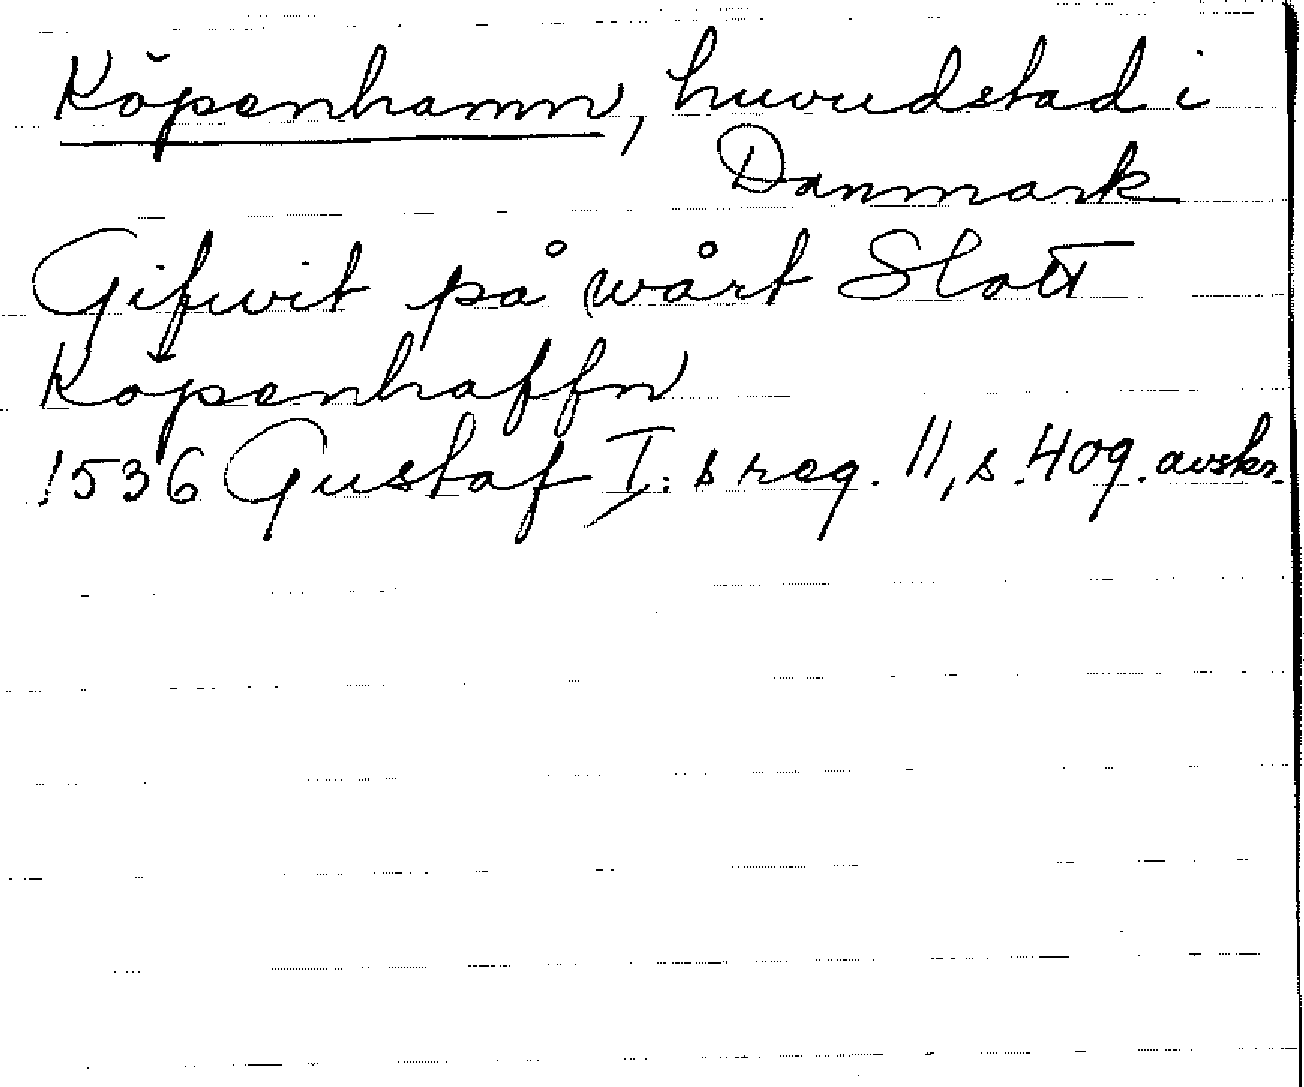 Köpenhamn, huvudstad i
Danmark
Gifwit på wårt Slott
Köpenhaffn
1536 Gustaf I:s reg. 11, s. 409. avskr.